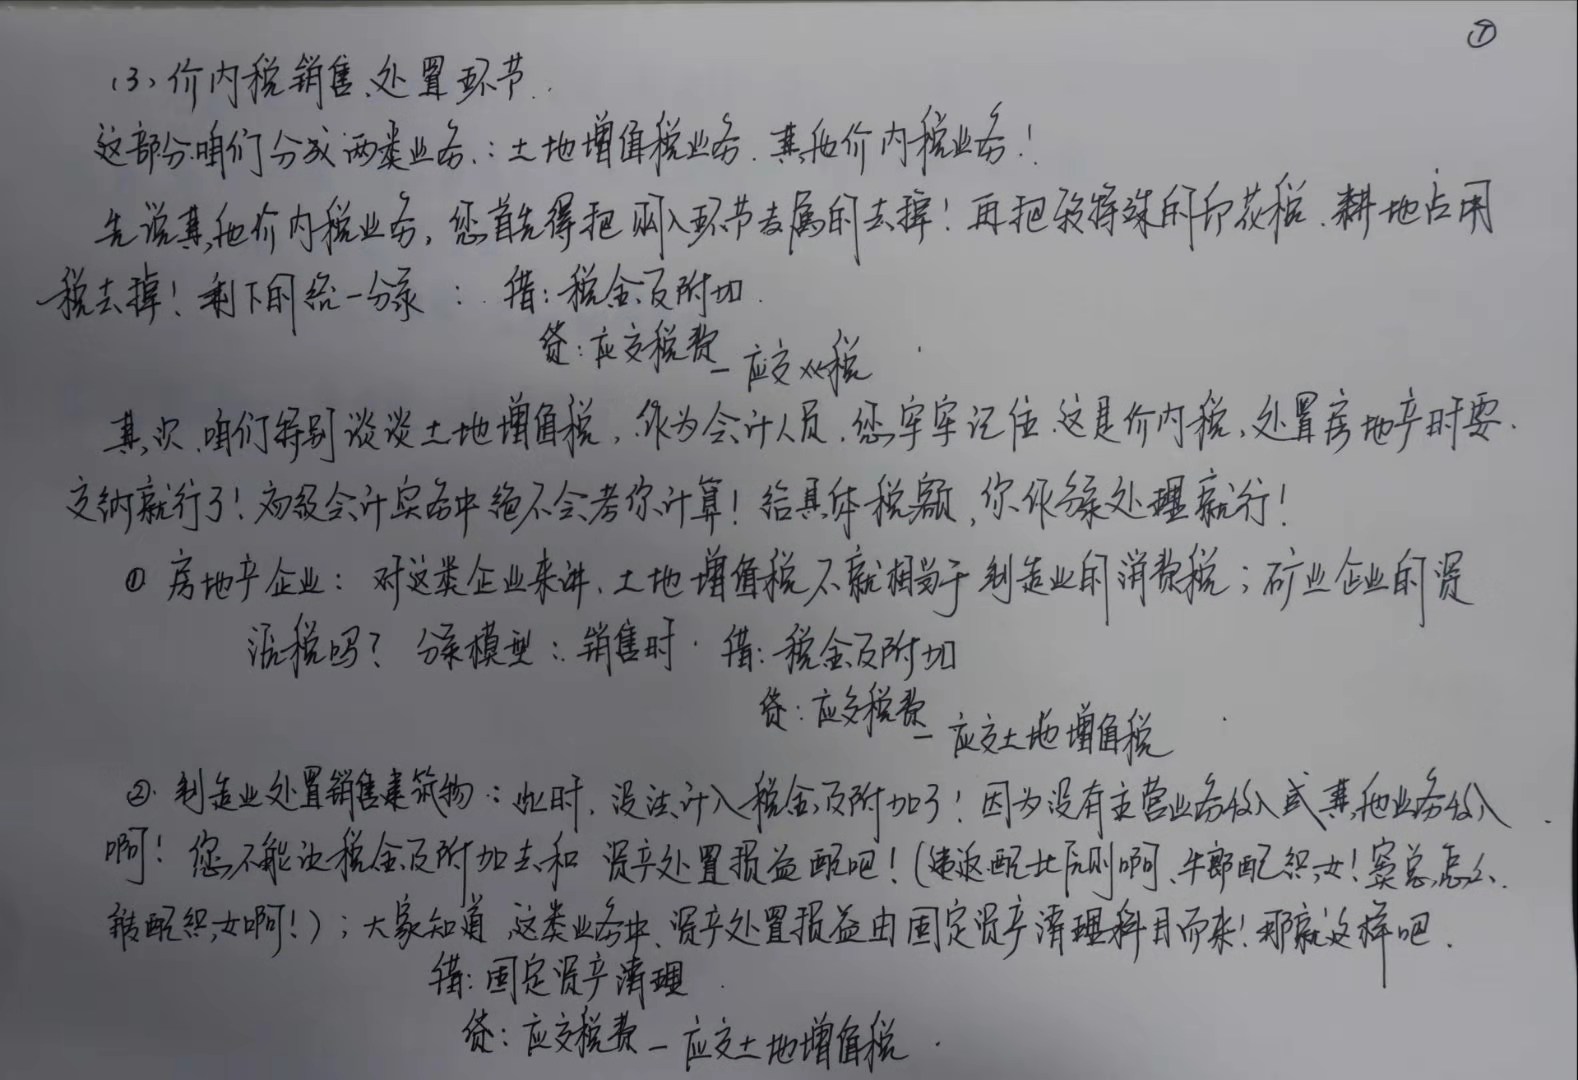 ⑦
(3)、价内税销售、处置环节.
这部分咱们分成两类业务:土地增值税业务、其他价内税业务!
先说其他价内税业务,您首先得把购入环节专属的去掉!再把较特殊的印花税、耕地占用
税去掉!剩下的给一分录:借:税金及附加
贷:应交税费—应交××税
其次,咱们特别谈谈土地增值税,作为会计人员,您牢牢记住,这是价内税,处置房地产时要
交纳就行了!初级会计实务中绝不会考你计算!给具体税额,你作分录处理就行!
① 房地产企业:对这类企业来讲,土地增值税不就相当于制造业的消费税;矿业企业的资
源税吗?分录模型:销售时,借:税金及附加
贷:应交税费—应交土地增值税
② 制造业处置销售建筑物:此时,没法计入税金及附加了!因为没有主营业务收入或其他业务收入
啊!您不能让税金及附加去和资产处置损益配吧!(违反配比原则啊、牛郎配织女!窦总怎么
能配织女啊!);大家知道,这类业务中、资产处置损益由固定资产清理科目而来!那就这样吧.
借:固定资产清理
贷:应交税费—应交土地增值税